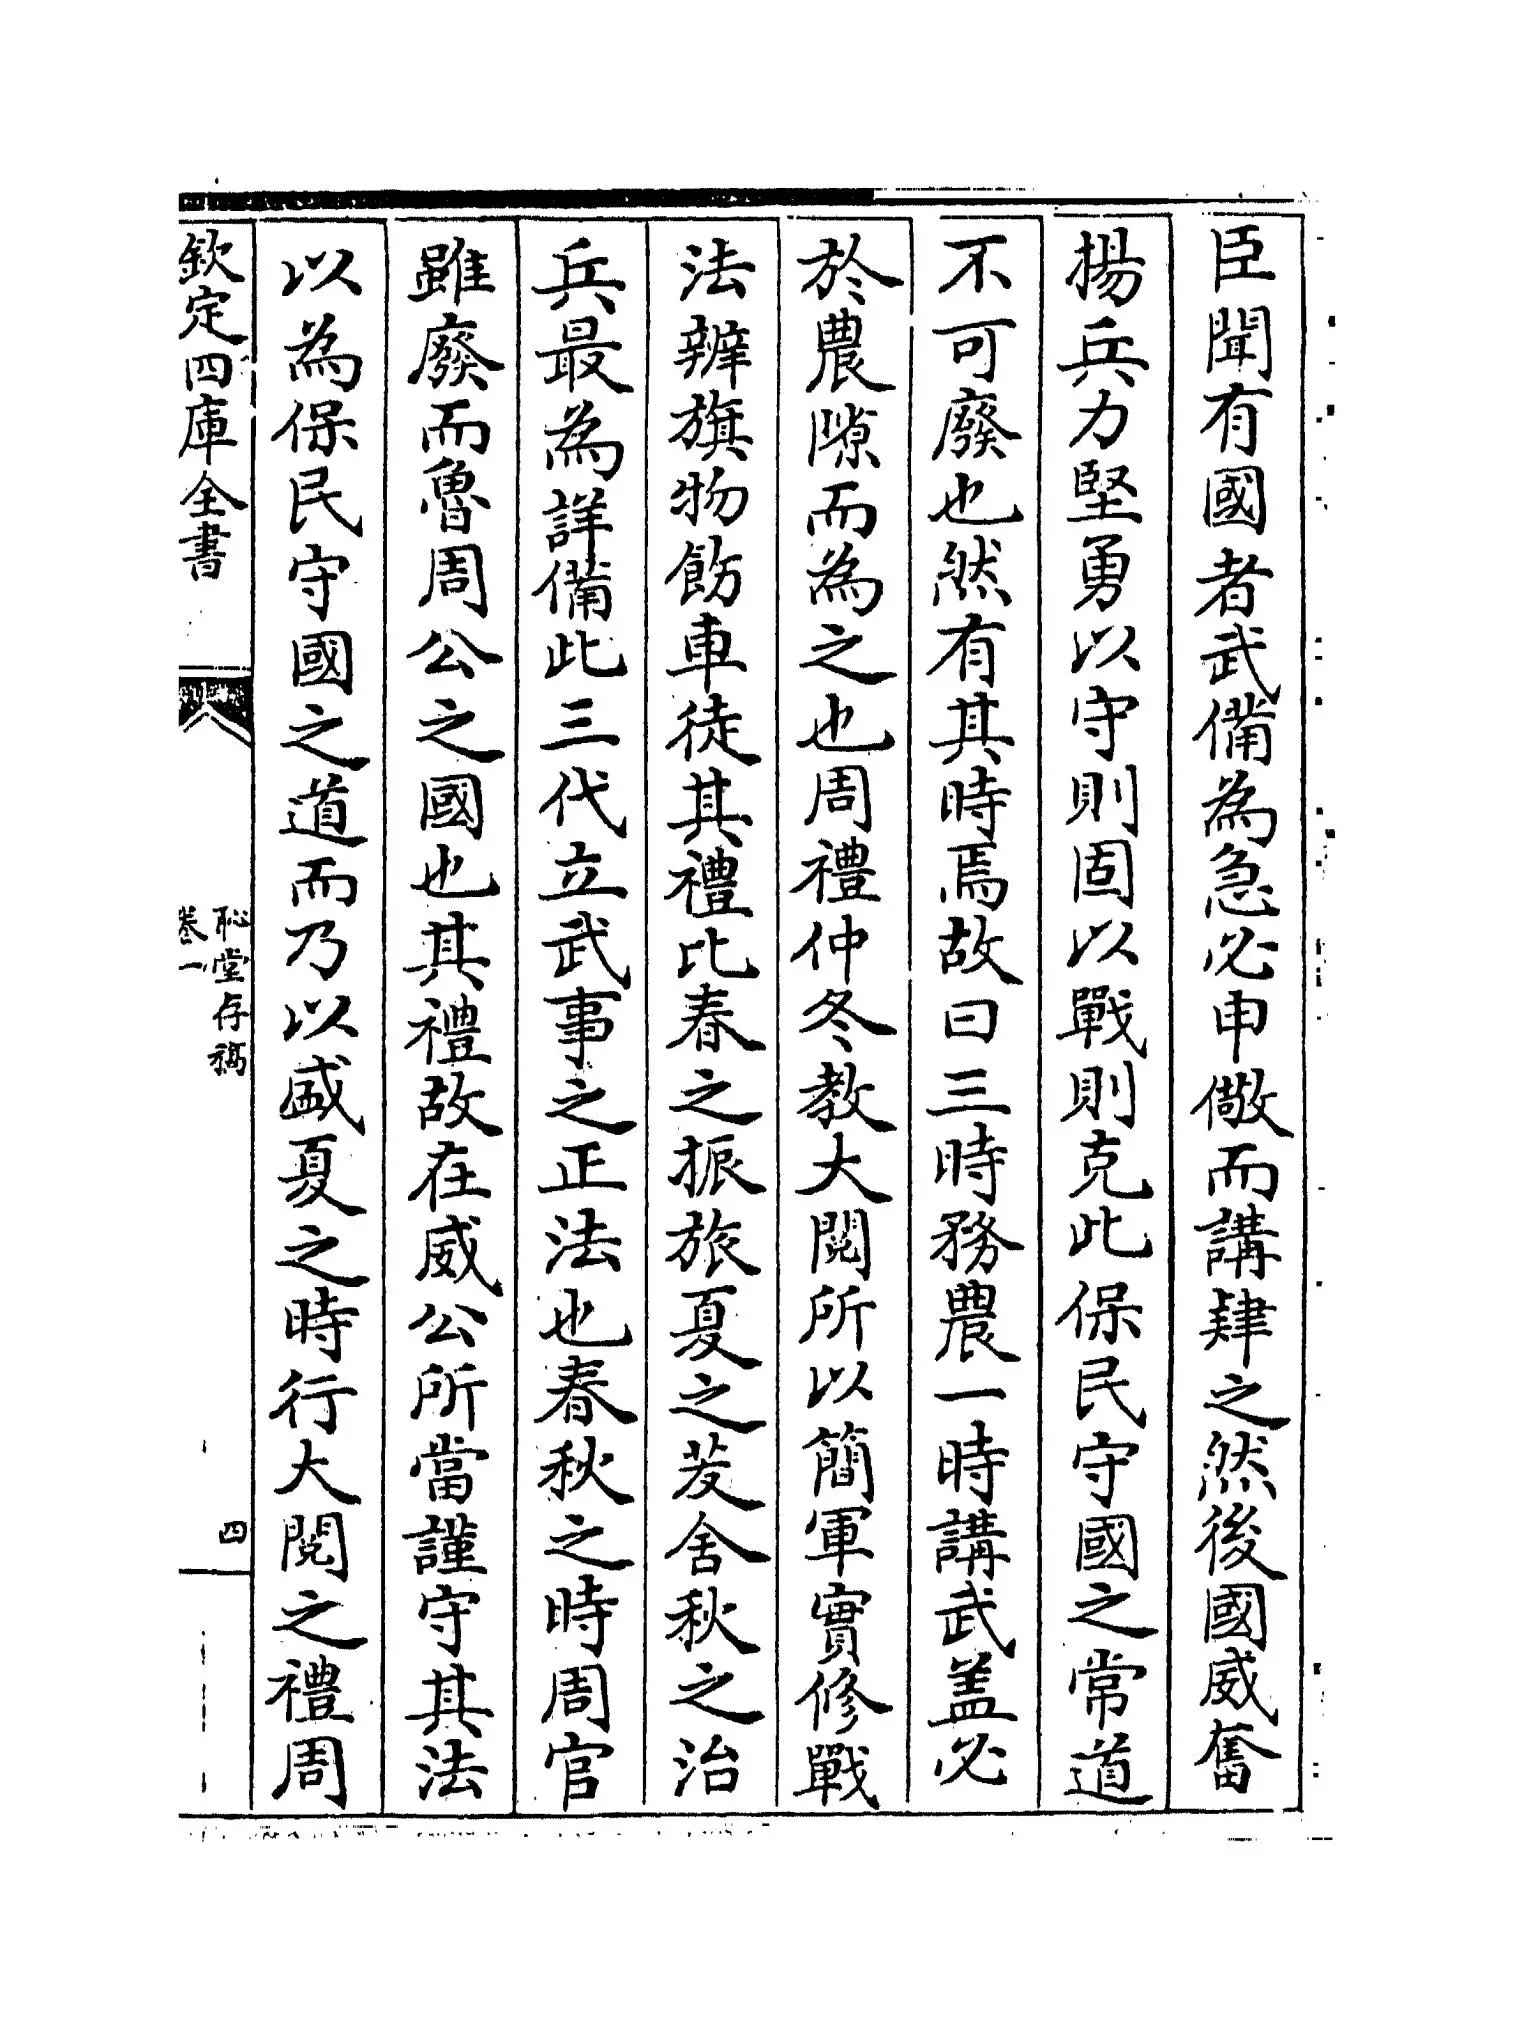 臣聞有國者武備為急必申儆而講肄之然後國威奮
揚兵力堅勇以守則固以戰則克此保民守國之常道
不可廢也然有其時焉故曰三時務農一時講武盖必
於農隙而為之也周禮仲冬教大閱所以簡軍實修戰
法辨旗物飭車徒其禮比春之振旅夏之茇舍秋之治
兵最為詳備此三代立武事之正法也春秋之時周官
雖廢而魯周公之國也其禮故在威公所當謹守其法
以為保民守國之道而乃以盛夏之時行大閱之禮周
欽定四庫全書
恥堂存稿
卷一
四